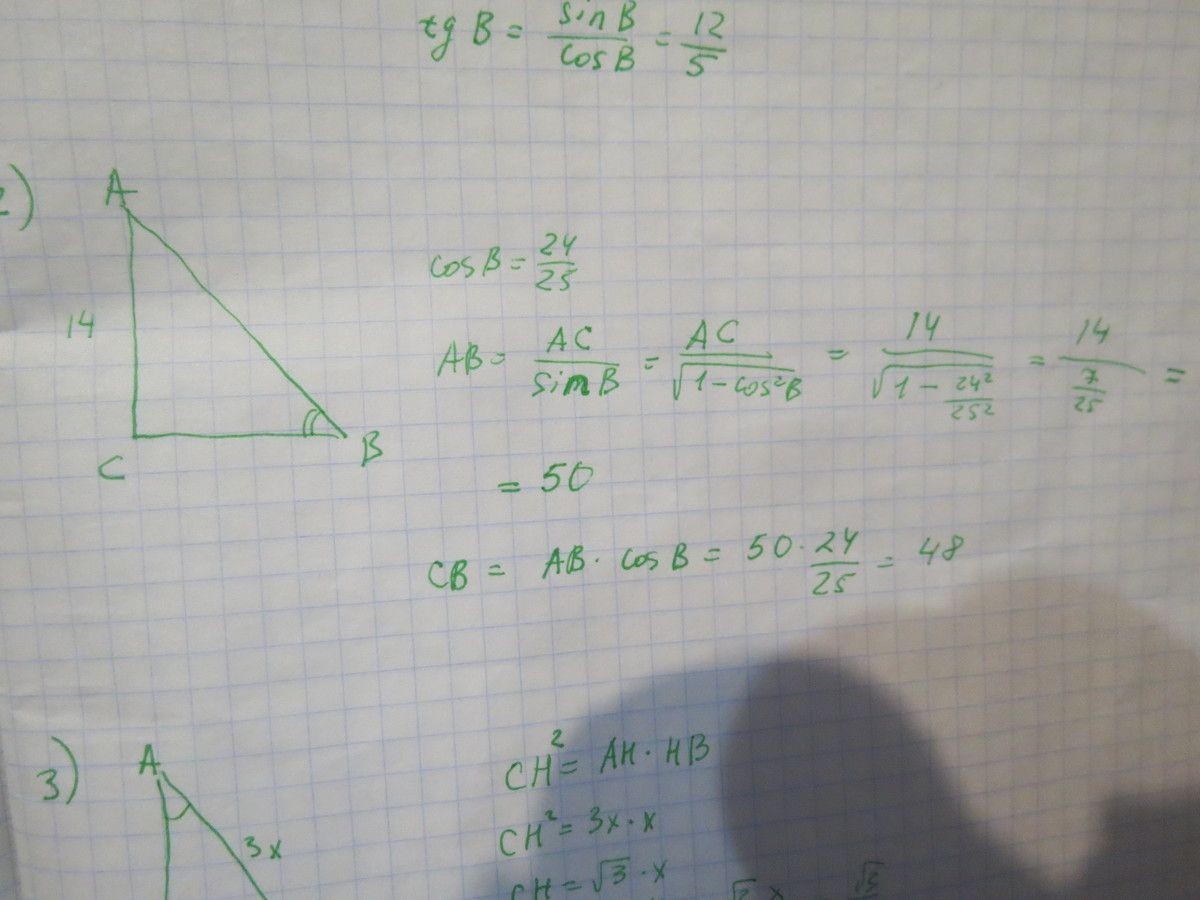 tg B = sin B / cos B = 12/5
2)
A
14
C
B
cos B = 24/25
AB = AC / sin B = AC / √(1 - cos²B) = 14 / √(1 - 24²/25²) = 14 / (7/25) =
= 50
CB = AB · cos B = 50 · 24/25 = 48
3)
A
3x
CH² = AH · HB
CH² = 3x · x
CH = √3 · x